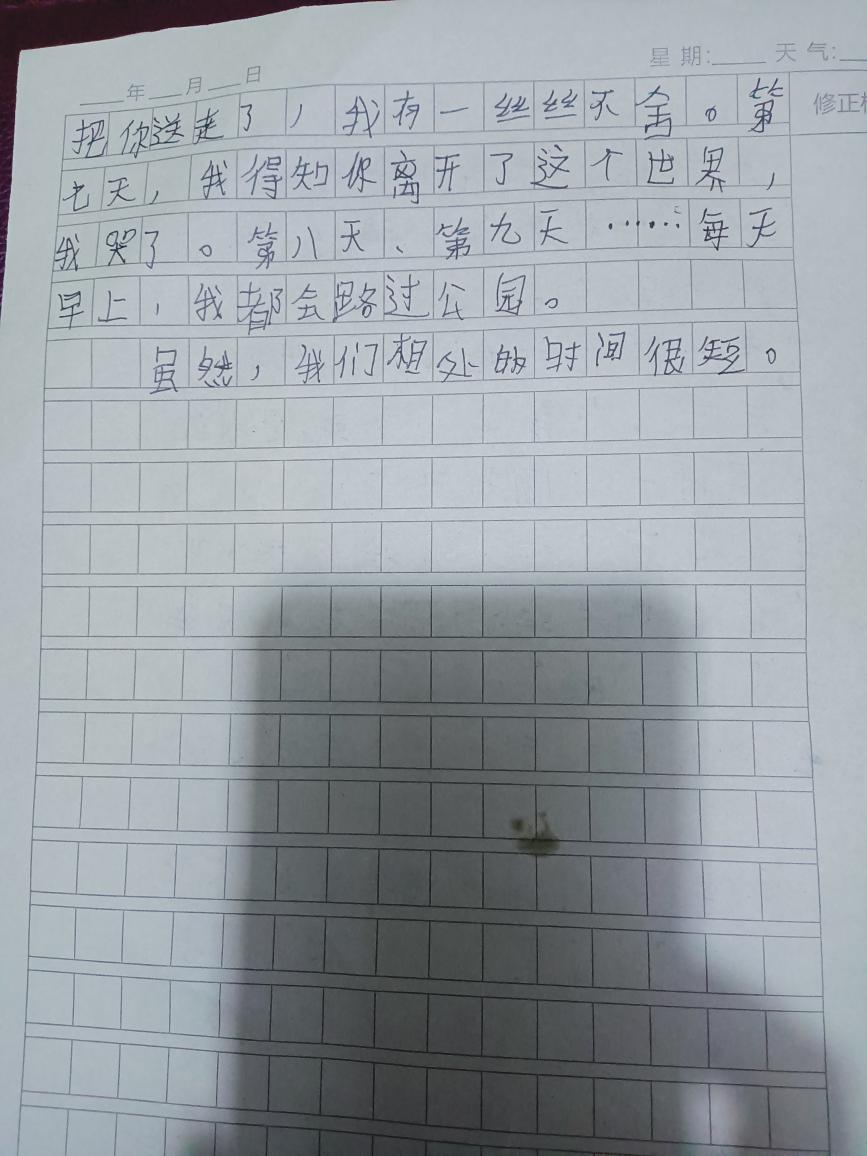 星期:____ 天气:__
____年___月___日
修正
把你送走了，我有一丝丝不舍。第
七天，我得知你离开了这个世界，
我哭了。第八天、第九天……每天
早上，我都会路过公园。
虽然，我们相处的时间很短。